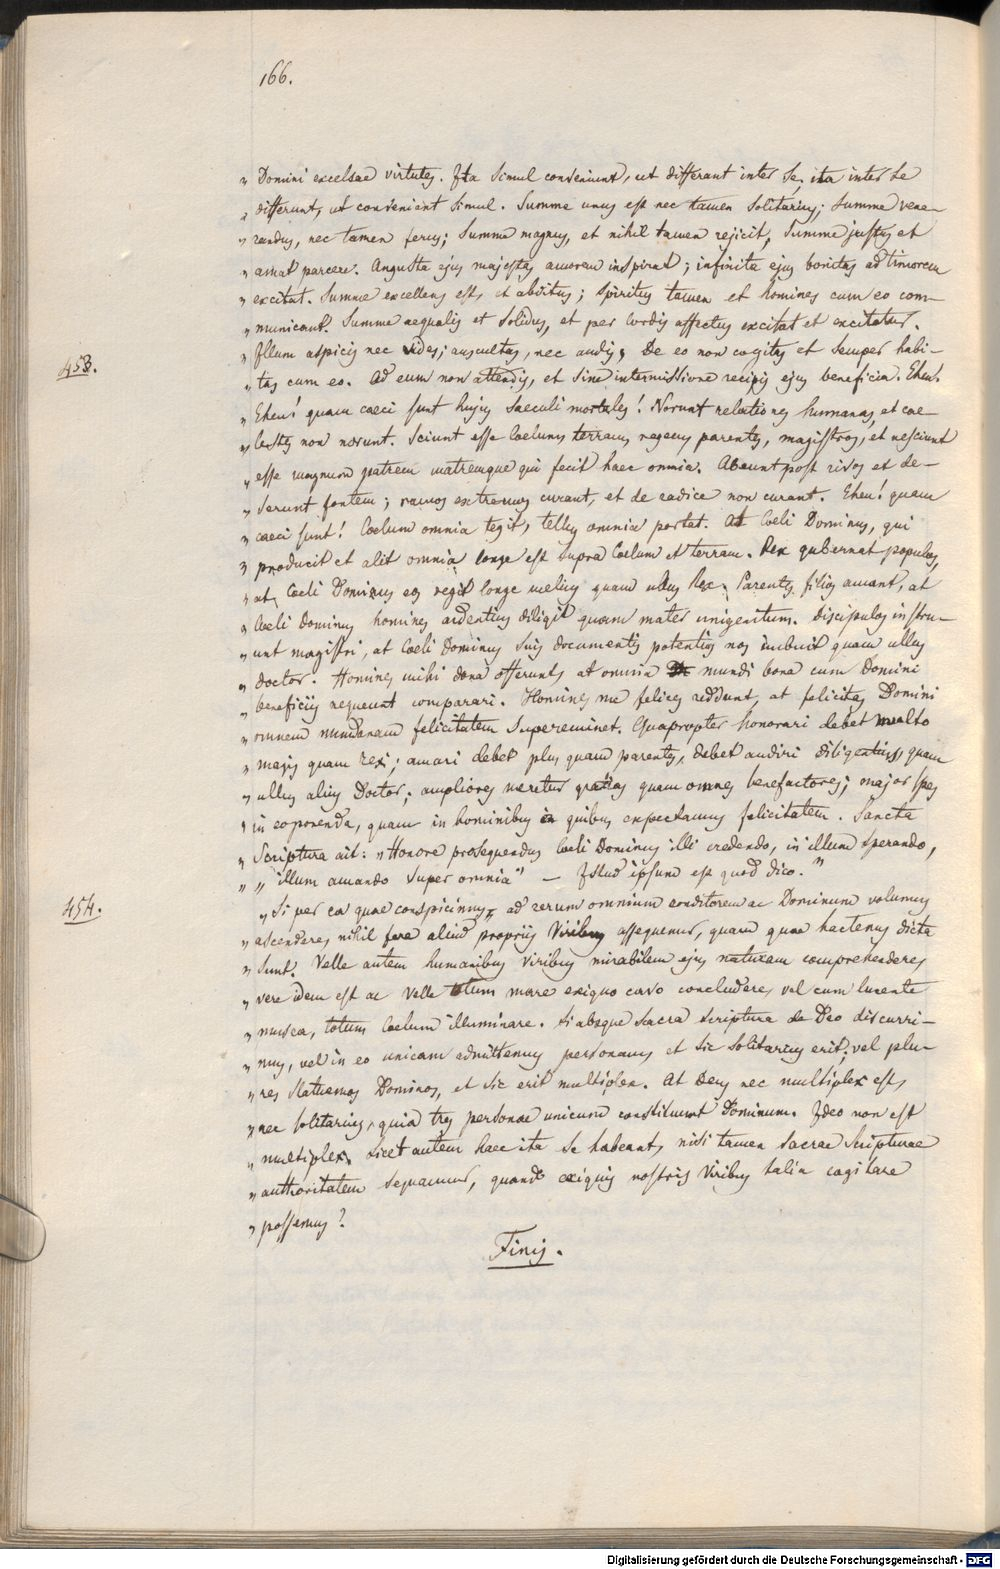 166.
„ Domini excelsae virtutes. Ita simul conveniunt, ut differant inter se, ita inter se
„ differunt, ut conveniant simul. Summe unus est nec tamen solitarius; summe vene-
„ randus, nec tamen ferus; summe magnus, et nihil tamen rejicit, summe justus et
„ amat parcere. Augusta ejus majestas amorem inspirat; infinita ejus bonitas ad timorem
„ excitat. Summe excellens est, et abditus; spiritus tamen et homines cum eo com-
„ municant. Summe aequalis et solidus, et per cordis affectus excitat et excitatur.
453.
„ Illum aspicis nec vides; auscultas, nec audis, De eo non cogitas et semper habi-
„ tas cum eo. Ad eum non attendis, et sine intermissione recipis ejus beneficia. Eheu.
„ Eheu! quam caeci sunt hujus saeculi mortales! Norunt relationes humanas, et cae-
„ lestes non norunt. Sciunt esse Coelum, terram, regem, parentes, magistros, et nesciunt
„ esse magnum patrem matremque qui fecit haec omnia. Abeunt post rivos et de-
„ serunt fontem; ramos extremos curant, et de radice non curant. Eheu! quam
„ caeci sunt! Coelum omnia tegit, tellus omnia portat. At Coeli Dominus, qui
„ producit et alit omnia longe est supra Coelum et terram. Rex gubernat populos,
„ at Coeli Dominus eos regit longe melius quam ullus Rex. Parentes filios amant, at
„ Coeli Dominus homines ardentius diligit quam mater unigenitum. Discipulos instru-
„ unt magistri, at Coeli Dominus suis documentis potentius nos imbuit quam ullus
„ doctor. Homines mihi dona offerunt, at omnia mundi bona cum Domini
„ beneficiis nequeunt comparari. Homines me felices reddunt, at felicitas Domini
„ omnem mundanam felicitatem supereminet. Quapropter honorari debet multo
„ magis quam rex; amari debet plus quam parentes, debet audiri diligentius, quam
„ ullus alius Doctor; ampliores meretur grates quam omnes benefactores; major spes
„ in eo ponenda, quam in hominibus a quibus expectamus felicitatem. Sancta
„ Scriptura ait: „Honore prosequendus Coeli Dominus illi credendo, in illum sperando,
„ „ illum amando super omnia“ — Istud ipsum est quod dico.”
454.
„ Si per ea quae conspicimus, ad rerum omnium conditorem ac Dominum volumus
„ ascendere, nihil fere aliud propriis viribus assequemur, quam quae hactenus dicta
„ sunt. Velle autem humanibus viribus mirabilem ejus naturam comprehendere,
„ vere idem est ac velle totum mare exiguo curvo concludere, vel cum lucente
„ musca, totum Coelum illuminare. Si absque sacra scriptura de Deo discurri-
„ mus, vel in eo unicam admittemus personam, et sic solitarius erit; vel plu-
„ res statuemus Dominos, et sic erit multiplex. At Deus nec multiplex est,
„ nec solitarius, quia tres personae unicum constituunt Dominum. Ideo non est
„ multiplex. Licet autem haec ita se habeant, nisi tamen sacrae Scripturae
„ authoritatem sequamur, quando exiguis nostris viribus talia cogitare
„ possemus?
Finis.
Digitalisierung gefördert durch die Deutsche Forschungsgemeinschaft - DFG